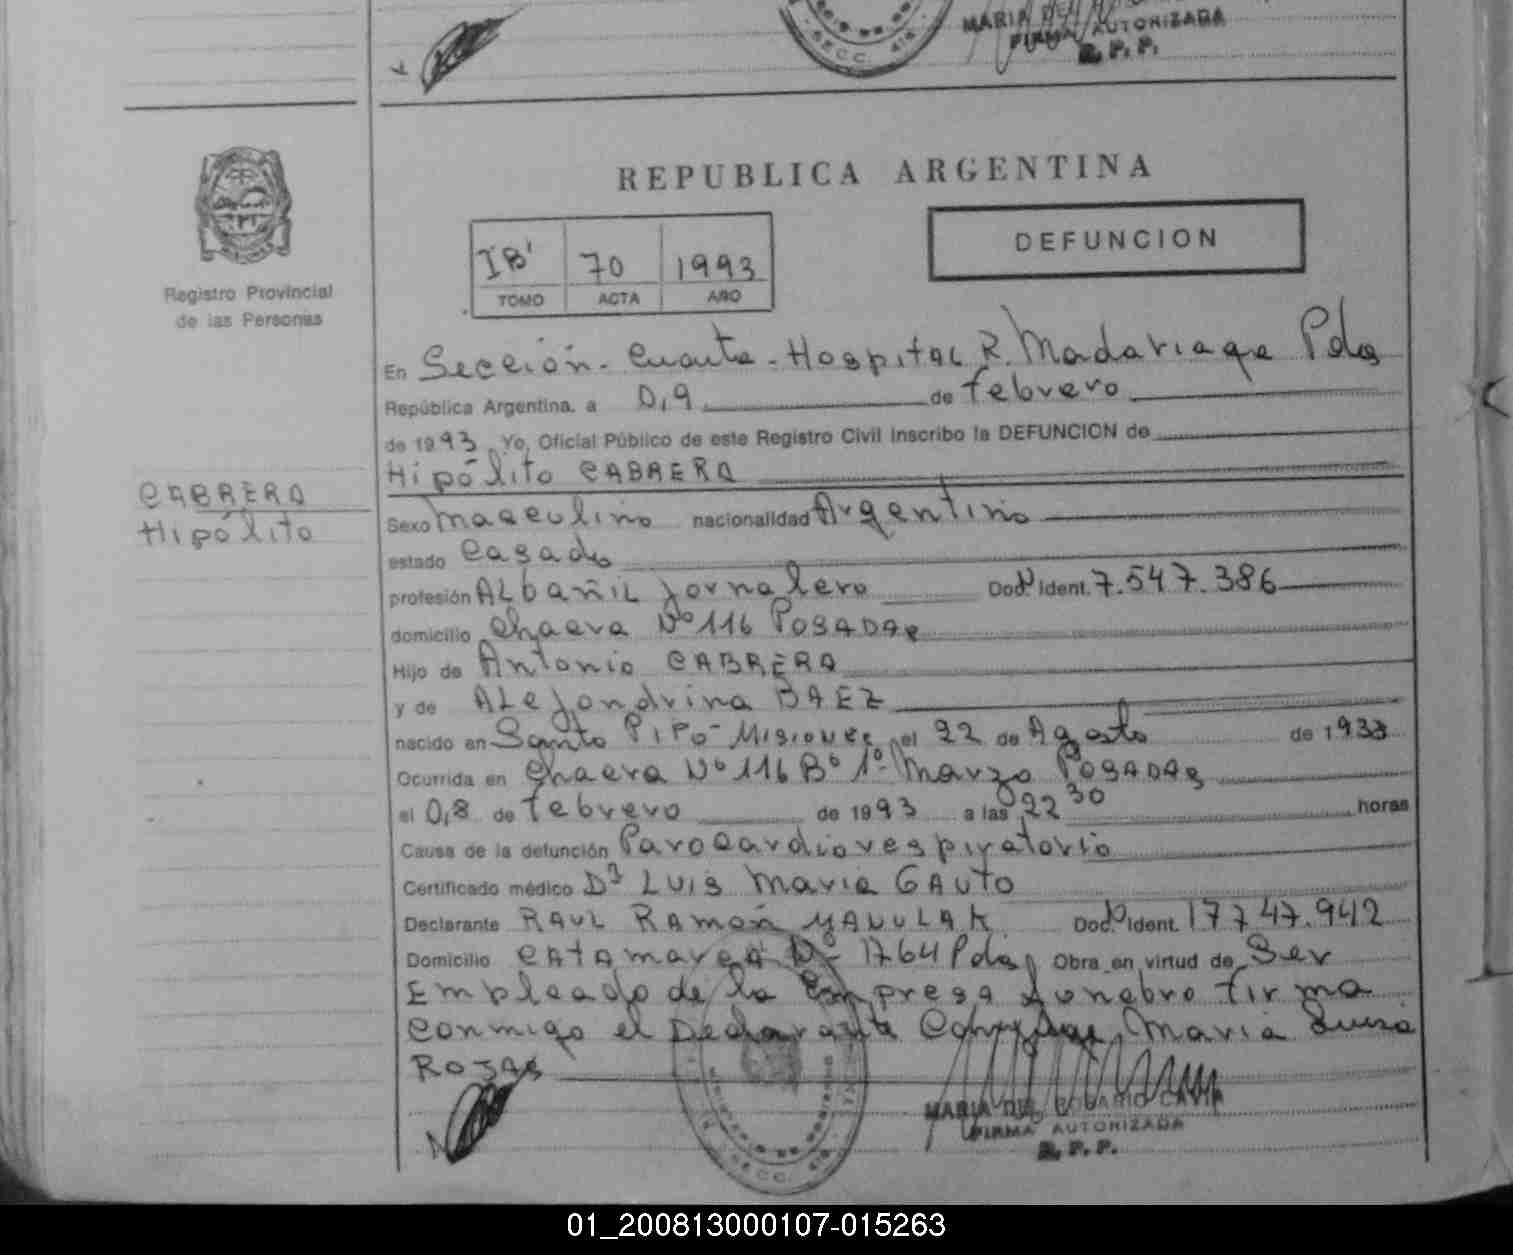 MARIA DEL
FIRMA AUTORIZADA
R. P. P.
SECC. 4ta
REPUBLICA ARGENTINA
IB' 70 1993
TOMO ACTA AÑO
DEFUNCION
Registro Provincial
de las Personas
En Sección - Cuarta - Hospital R. Madariaga Pdas
República Argentina, a 0,9 de febrero
de 1993 Yo, Oficial Público de este Registro Civil Inscribo la DEFUNCION de
Hipólito CABRERA
CABRERA
Hipólito
Sexo masculino nacionalidad Argentino
estado Casado
profesión ALbañiL Jornalero Doc. Ident. 7.547.386
domicilio Chacra Nº 116 POSADAS
Hijo de Antonio CABRERA
y de ALejandrina BAEZ
nacido en Santo Pipó - Misiones el 22 de Agosto de 1933
Ocurrida en Chacra Nº 116 Bº 1º Marzo POSADAS
el 0,8 de febrero de 1993 a las 22 30 horas
Causa de la defunción Parocardiorespiratorio
Certificado médico Dr LUIS María GAUTO
Declarante RAUL RAMón YANULAK Doc. Ident. 17747.942
Domicilio CATAmarca Nº 1764 Pdas Obra en virtud de Ser
Empleado de la Empresa funebre firma
conmigo el Declarante Conyuge María Luisa
ROJAS
MARIA DEL ROSARIO
FIRMA AUTORIZADA
R. P. P.
SECC. 4ta
01_200813000107-015263